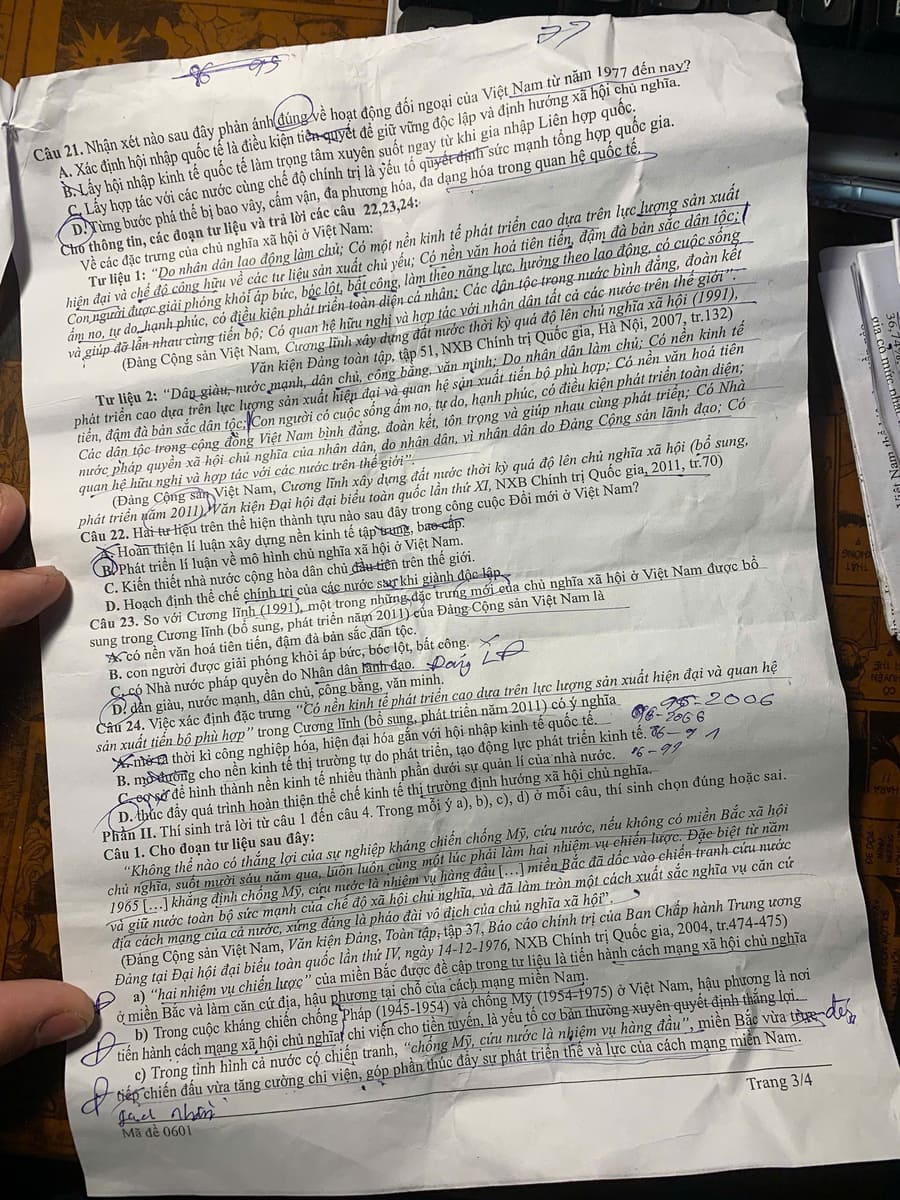 96 95
27
Câu 21. Nhận xét nào sau đây phản ánh đúng về hoạt động đối ngoại của Việt Nam từ năm 1977 đến nay?
A. Xác định hội nhập quốc tế là điều kiện tiên quyết để giữ vững độc lập và định hướng xã hội chủ nghĩa.
B. Lấy hội nhập kinh tế quốc tế làm trọng tâm xuyên suốt ngay từ khi gia nhập Liên hợp quốc.
C. Lấy hợp tác với các nước cùng chế độ chính trị là yếu tố quyết định sức mạnh tổng hợp quốc gia.
D. Từng bước phá thế bị bao vây, cấm vận, đa phương hóa, đa dạng hóa trong quan hệ quốc tế.
Cho thông tin, các đoạn tư liệu và trả lời các câu 22,23,24:
Về các đặc trưng của chủ nghĩa xã hội ở Việt Nam:
Tư liệu 1: "Do nhân dân lao động làm chủ; Có một nền kinh tế phát triển cao dựa trên lực lượng sản xuất
hiện đại và chế độ công hữu về các tư liệu sản xuất chủ yếu; Có nền văn hoá tiên tiến, đậm đà bản sắc dân tộc;
Con người được giải phóng khỏi áp bức, bóc lột, bất công, làm theo năng lực, hưởng theo lao động, có cuộc sống
ấm no, tự do, hạnh phúc, có điều kiện phát triển toàn diện cá nhân; Các dân tộc trong nước bình đẳng, đoàn kết
và giúp đỡ lẫn nhau cùng tiến bộ; Có quan hệ hữu nghị và hợp tác với nhân dân tất cả các nước trên thế giới".
(Đảng Cộng sản Việt Nam, Cương lĩnh xây dựng đất nước thời kỳ quá độ lên chủ nghĩa xã hội (1991),
Văn kiện Đảng toàn tập, tập 51, NXB Chính trị Quốc gia, Hà Nội, 2007, tr.132)
Tư liệu 2: "Dân giàu, nước mạnh, dân chủ, công bằng, văn minh; Do nhân dân làm chủ; Có nền kinh tế
phát triển cao dựa trên lực lượng sản xuất hiện đại và quan hệ sản xuất tiến bộ phù hợp; Có nền văn hoá tiên
tiến, đậm đà bản sắc dân tộc; Con người có cuộc sống ấm no, tự do, hạnh phúc, có điều kiện phát triển toàn diện;
Các dân tộc trong cộng đồng Việt Nam bình đẳng, đoàn kết, tôn trọng và giúp nhau cùng phát triển; Có Nhà
nước pháp quyền xã hội chủ nghĩa của nhân dân, do nhân dân, vì nhân dân do Đảng Cộng sản lãnh đạo; Có
quan hệ hữu nghị và hợp tác với các nước trên thế giới"
(Đảng Cộng sản Việt Nam, Cương lĩnh xây dựng đất nước thời kỳ quá độ lên chủ nghĩa xã hội (bổ sung,
phát triển năm 2011), Văn kiện Đại hội đại biểu toàn quốc lần thứ XI, NXB Chính trị Quốc gia, 2011, tr.70)
Câu 22. Hai tư liệu trên thể hiện thành tựu nào sau đây trong công cuộc Đổi mới ở Việt Nam?
A. Hoàn thiện lí luận xây dựng nền kinh tế tập trung, bao cấp.
B. Phát triển lí luận về mô hình chủ nghĩa xã hội ở Việt Nam.
C. Kiến thiết nhà nước cộng hòa dân chủ đầu tiên trên thế giới.
D. Hoạch định thể chế chính trị của các nước sau khi giành độc lập.
Câu 23. So với Cương lĩnh (1991), một trong những đặc trưng mới của chủ nghĩa xã hội ở Việt Nam được bổ
sung trong Cương lĩnh (bổ sung, phát triển năm 2011) của Đảng Cộng sản Việt Nam là
A. có nền văn hoá tiên tiến, đậm đà bản sắc dân tộc.
B. con người được giải phóng khỏi áp bức, bóc lột, bất công.
C. có Nhà nước pháp quyền do Nhân dân lãnh đạo. Đảng LĐ
D. dân giàu, nước mạnh, dân chủ, công bằng, văn minh.
Câu 24. Việc xác định đặc trưng "Có nền kinh tế phát triển cao dựa trên lực lượng sản xuất hiện đại và quan hệ
sản xuất tiến bộ phù hợp" trong Cương lĩnh (bổ sung, phát triển năm 2011) có ý nghĩa
A. mở ra thời kì công nghiệp hóa, hiện đại hóa gắn với hội nhập kinh tế quốc tế.
B. mở đường cho nền kinh tế thị trường tự do phát triển, tạo động lực phát triển kinh tế.
C. cơ sở để hình thành nền kinh tế nhiều thành phần dưới sự quản lí của nhà nước.
D. thúc đẩy quá trình hoàn thiện thể chế kinh tế thị trường định hướng xã hội chủ nghĩa.
95-2006
96-2006
86-91
Phần II. Thí sinh trả lời từ câu 1 đến câu 4. Trong mỗi ý a), b), c), d) ở mỗi câu, thí sinh chọn đúng hoặc sai.
Câu 1. Cho đoạn tư liệu sau đây:
"Không thể nào có thắng lợi của sự nghiệp kháng chiến chống Mỹ, cứu nước, nếu không có miền Bắc xã hội
chủ nghĩa, suốt mười sáu năm qua, luôn luôn cùng một lúc phải làm hai nhiệm vụ chiến lược. Đặc biệt từ năm
1965 [...] khẳng định chống Mỹ, cứu nước là nhiệm vụ hàng đầu [...] miền Bắc đã dốc vào chiến tranh cứu nước
và giữ nước toàn bộ sức mạnh của chế độ xã hội chủ nghĩa, và đã làm tròn một cách xuất sắc nghĩa vụ căn cứ
địa cách mạng của cả nước, xứng đáng là pháo đài vô địch của chủ nghĩa xã hội".
(Đảng Cộng sản Việt Nam, Văn kiện Đảng, Toàn tập, tập 37, Báo cáo chính trị của Ban Chấp hành Trung ương
Đảng tại Đại hội đại biểu toàn quốc lần thứ IV, ngày 14-12-1976, NXB Chính trị Quốc gia, 2004, tr.474-475)
a) "hai nhiệm vụ chiến lược" của miền Bắc được đề cập trong tư liệu là tiến hành cách mạng xã hội chủ nghĩa
ở miền Bắc và làm căn cứ địa, hậu phương tại chỗ của cách mạng miền Nam.
b) Trong cuộc kháng chiến chống Pháp (1945-1954) và chống Mỹ (1954-1975) ở Việt Nam, hậu phương là nơi
tiến hành cách mạng xã hội chủ nghĩa, chi viện cho tiền tuyến, là yếu tố cơ bản thường xuyên quyết định thắng lợi.
c) Trong tình hình cả nước có chiến tranh, "chống Mỹ, cứu nước là nhiệm vụ hàng đầu", miền Bắc vừa trực
tiếp chiến đấu vừa tăng cường chi viện, góp phần thúc đẩy sự phát triển thế và lực của cách mạng miền Nam.
Trang 3/4
Mã đề 0601